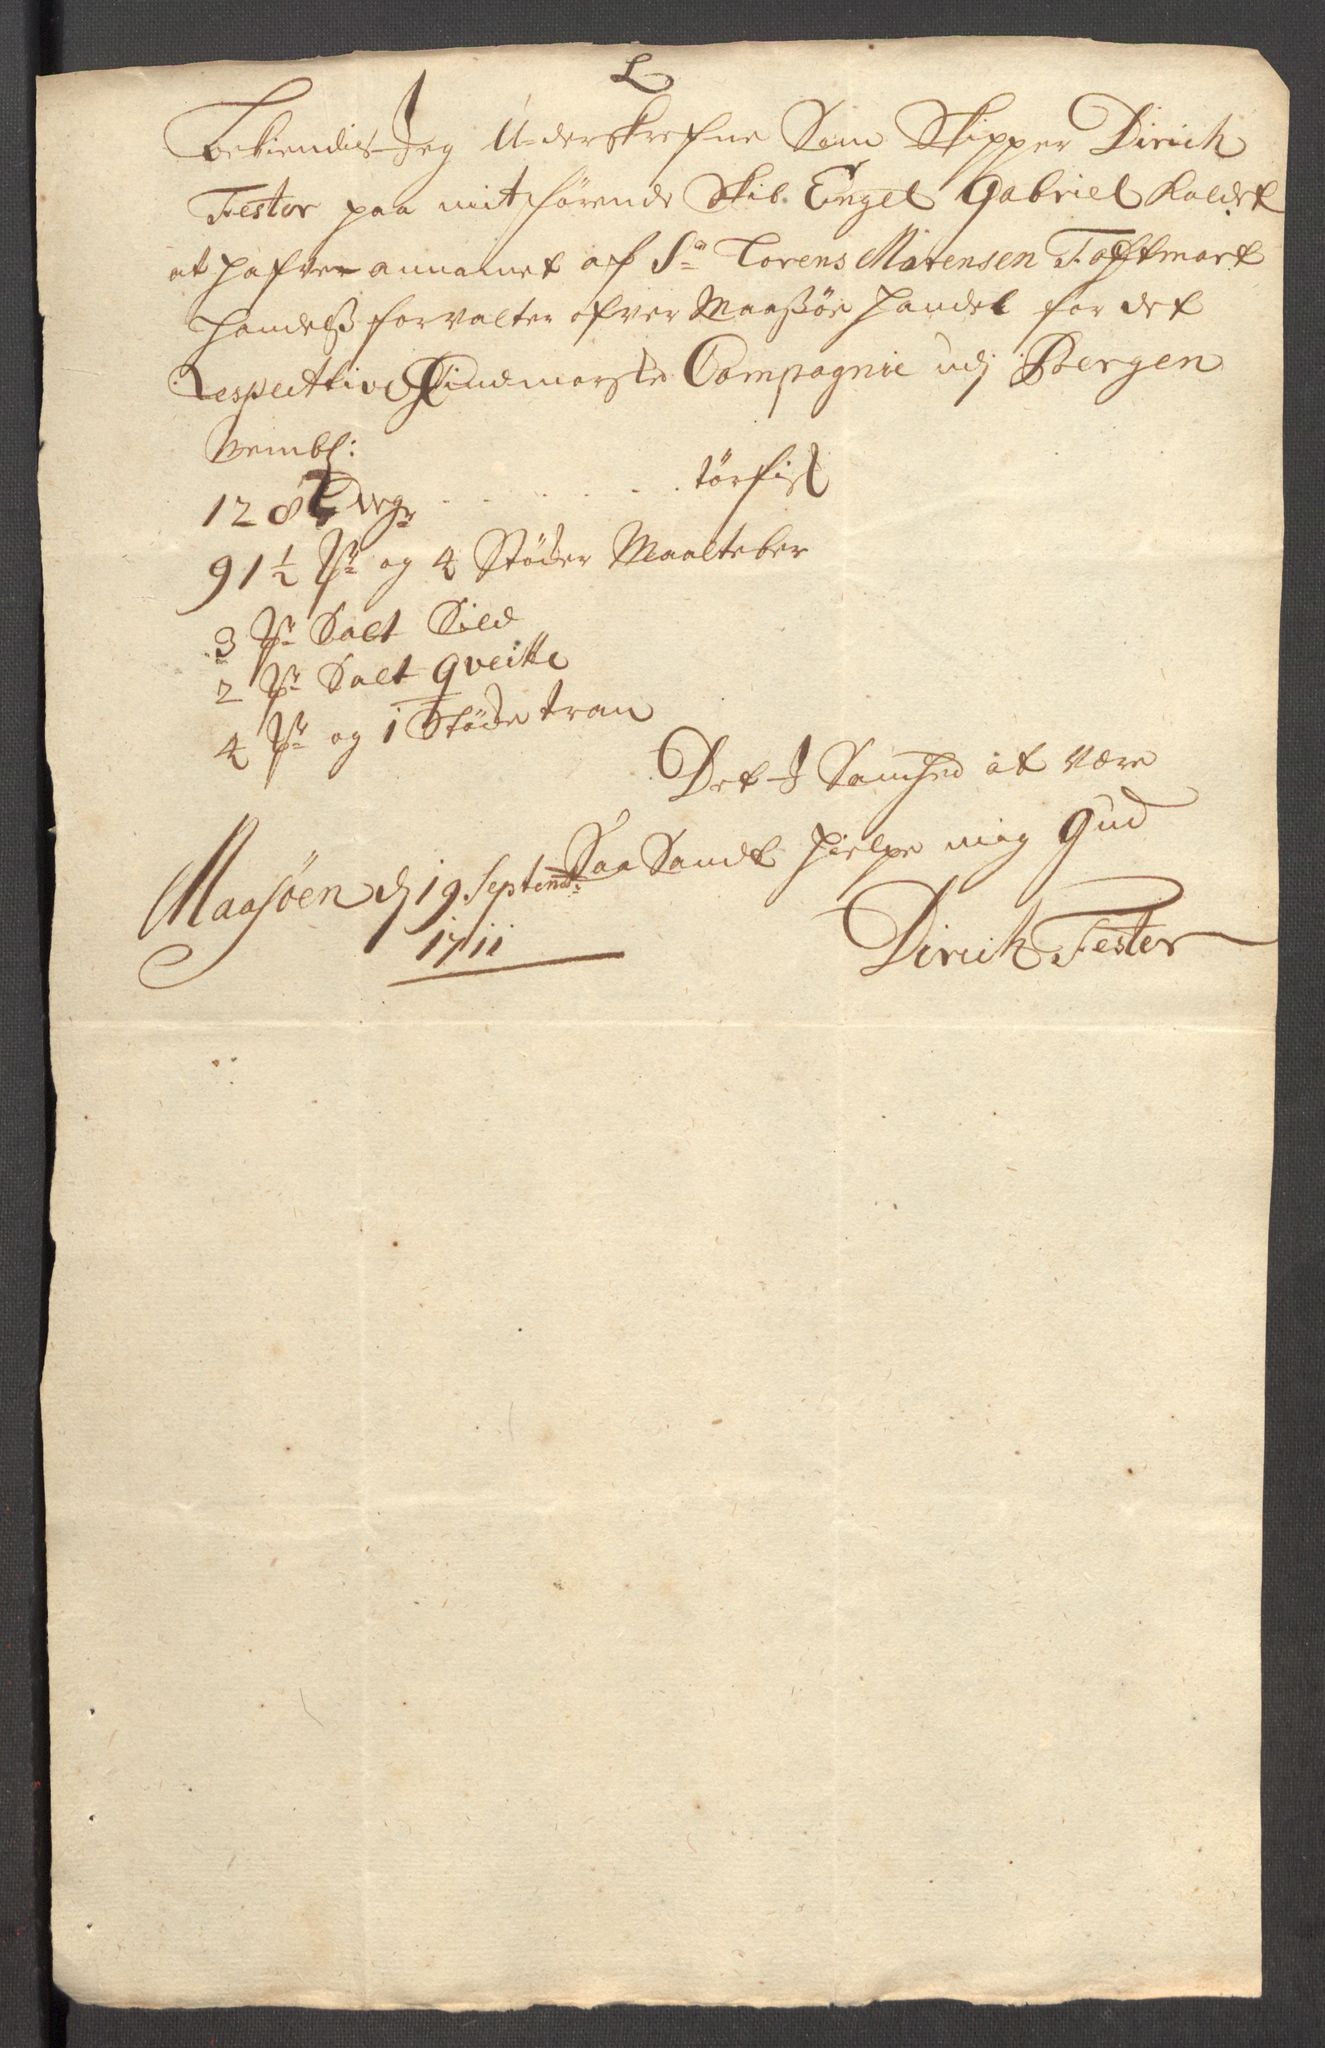 L
Bekiendis Jeg Underskrefne Som Skipper Dirich
Fester paa mit förende Skib. Engel Gabriel Kaldet
at hafver annamet af Sr Lorens Mörensen Tofftmark
handelsforvalter ofver Maassöe handel for det
Respective Findmarske Compagnie udj Bergen
Nembl:
128 Wogr . . . . . . törfisk
91½ Tr og 4 Stöder Maalteber
3 Tr Salt Sild
2 Tr Salt Qveitte
4 Tr og 1 Stöde tran
Det I Sanhed at være
Saa Sandt hielpe mig Gud
Maasöen dj 19 Septembr:
1711
Dirich Fester